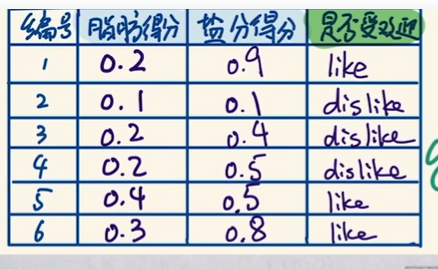 编号 脂肪得分 盐分得分 是否受欢迎
1 0.2 0.9 like
2 0.1 0.1 dislike
3 0.2 0.4 dislike
4 0.2 0.5 dislike
5 0.4 0.5 like
6 0.3 0.8 like